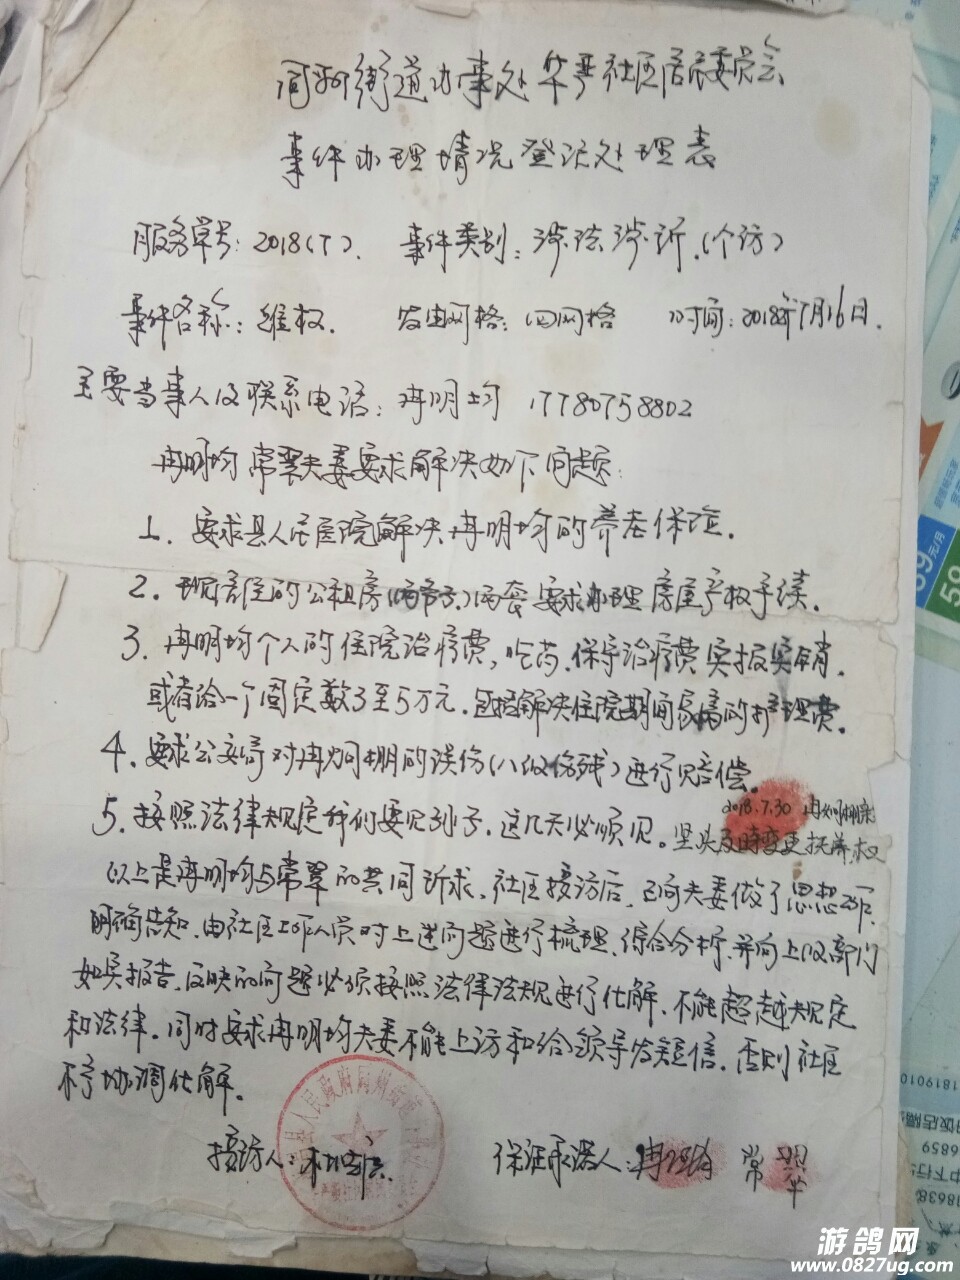 同州街道办事处华严社区居民委员会
事件办理情况登记处理表
服务单号：2018(7). 事件类别：涉法涉诉.(个访)
事件名称：维权. 发生网格：四网格 时间：2018年7月16日.
主要当事人及联系电话：冉明均 17780758802
冉明均常翠夫妻要求解决如下问题：
1. 要求县人民医院解决冉明均的养老保险.
2. 现居住的公租房()两套要求办理房屋产权手续.
3. 冉明均个人的住院治疗费，吃药.保守治疗费实报实销.
或者给一个固定数3至5万元.包括解决住院期间的护理费.
4. 要求公安局对冉炯棚的误伤(八级伤残)进行赔偿.
2018.7.30 冉炯棚亲
5. 按照法律规定我们要见孙子.这几天必须见。坚决及時变更抚养权
以上是冉明均与常翠的共同诉求.社区接访后.已向夫妻做了思想工作.
明确告知.由社区工作人员对上述问题进行梳理.综合分析.并向上级部门
如实报告.反映的问题必须按照法律法规进行化解.不能超越规定
和法律.同时要求冉明均夫妻不能上访和给领导发短信.否则社区
不予协调化解.
接访人： 保证承诺人：冉明均 常翠
县人民政府同州街道
59元/月
58
1819010
6859
18638
游鸽网
www.0827ug.com